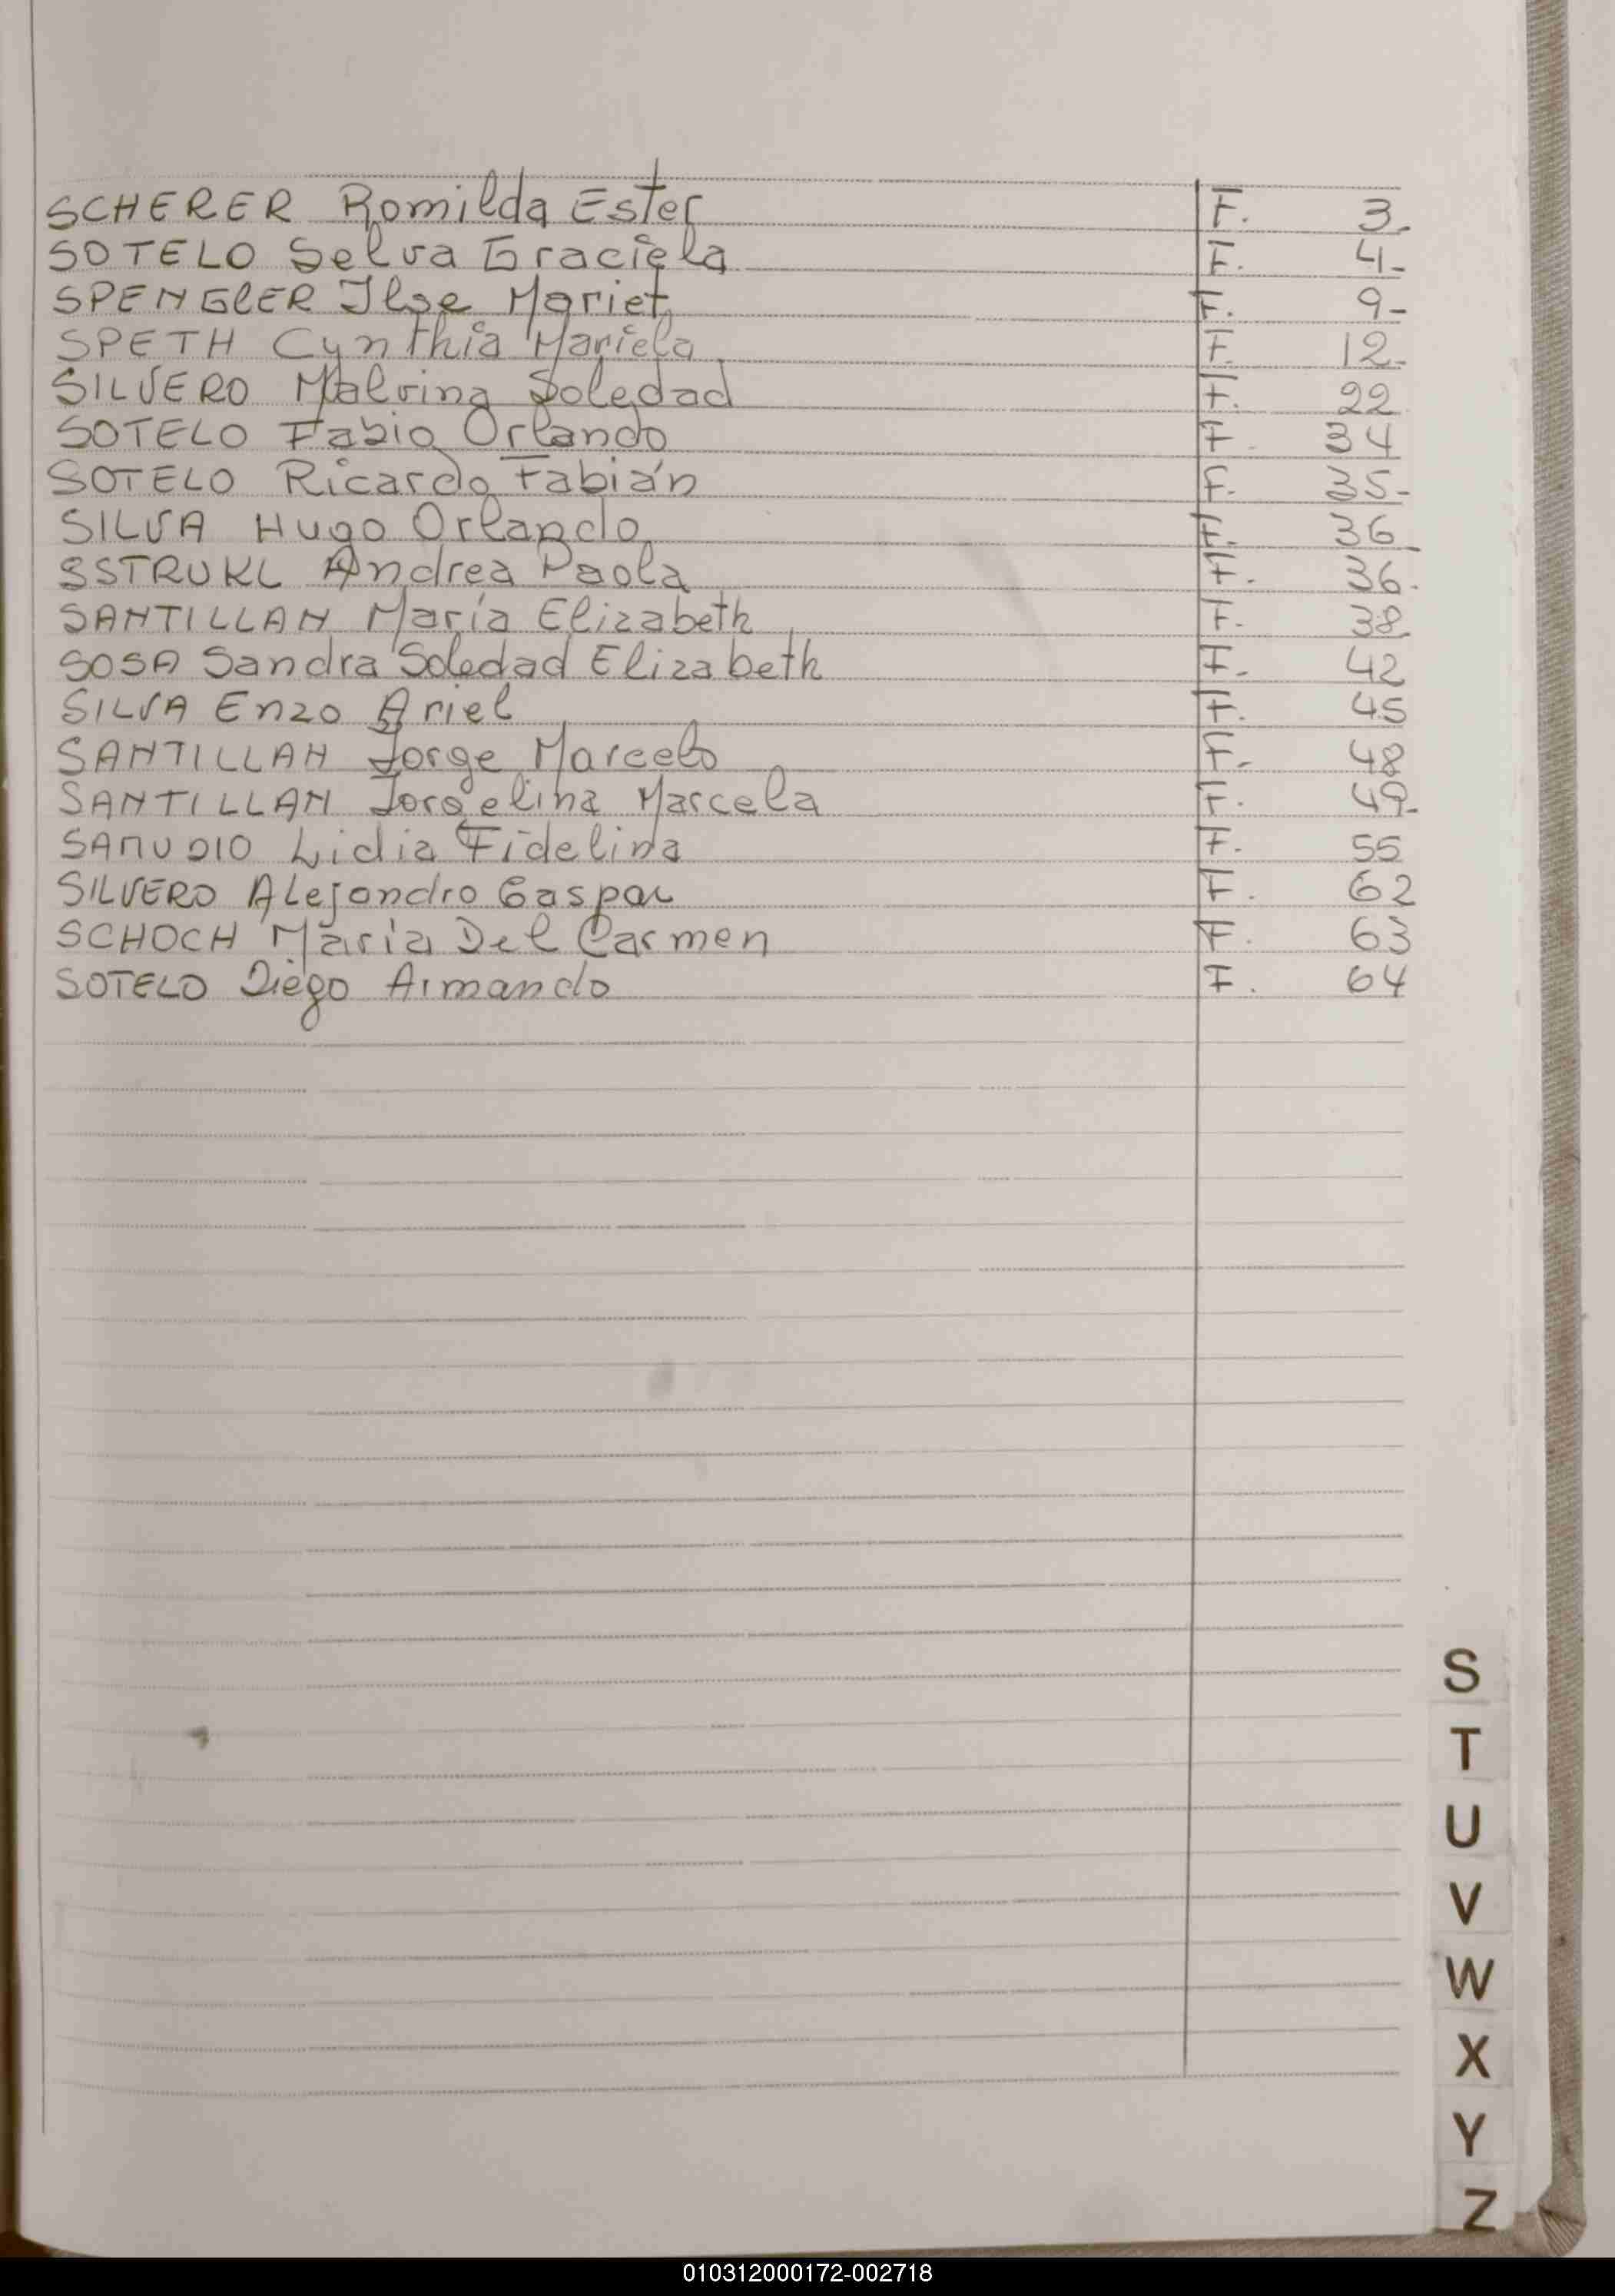 SCHERER Romilda Ester F. 3.
SOTELO Selva Graciela F. 4-
SPENGLER Ilse Mariet F. 9-
SPETH Cynthia Mariela F. 12-
SILVERO Malvina Soledad F. 22
SOTELO Fabio Orlando F. 34
SOTELO Ricardo Fabián F. 35-
SILVA Hugo Orlando F. 36
SSTRUKL Andrea Paola F. 36.
SANTILLAN María Elizabeth F. 38.
SOSA Sandra Soledad Elizabeth F. 42
SILVA Enzo Ariel F. 45
SANTILLAN Jorge Marcelo F. 48
SANTILLAN Jorgelina Marcela F. 49-
SAMUDIO Lidia Fidelina F. 55
SILVERO Alejandro Gaspar F. 62
SCHOCH María Del Carmen F. 63
SOTELO Diego Armando F. 64
S
T
U
V
W
X
Y
Z
010312000172-002718